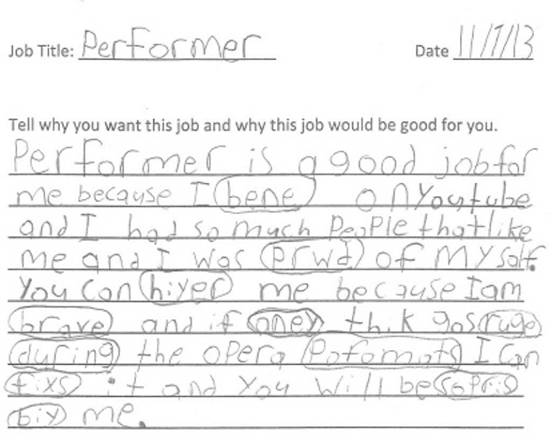 Job Title: Performer Date 11/7/13
Tell why you want this job and why this job would be good for you.
Performer is a good job for
me because I bene on Youtube
and I had so much People that like
me and I was prwd of my salf.
You Can hiyer me because I am
brave and if aney thik gos ruge
during the opera Pofomats I Can
fixs it and you will be sopris
biy me.